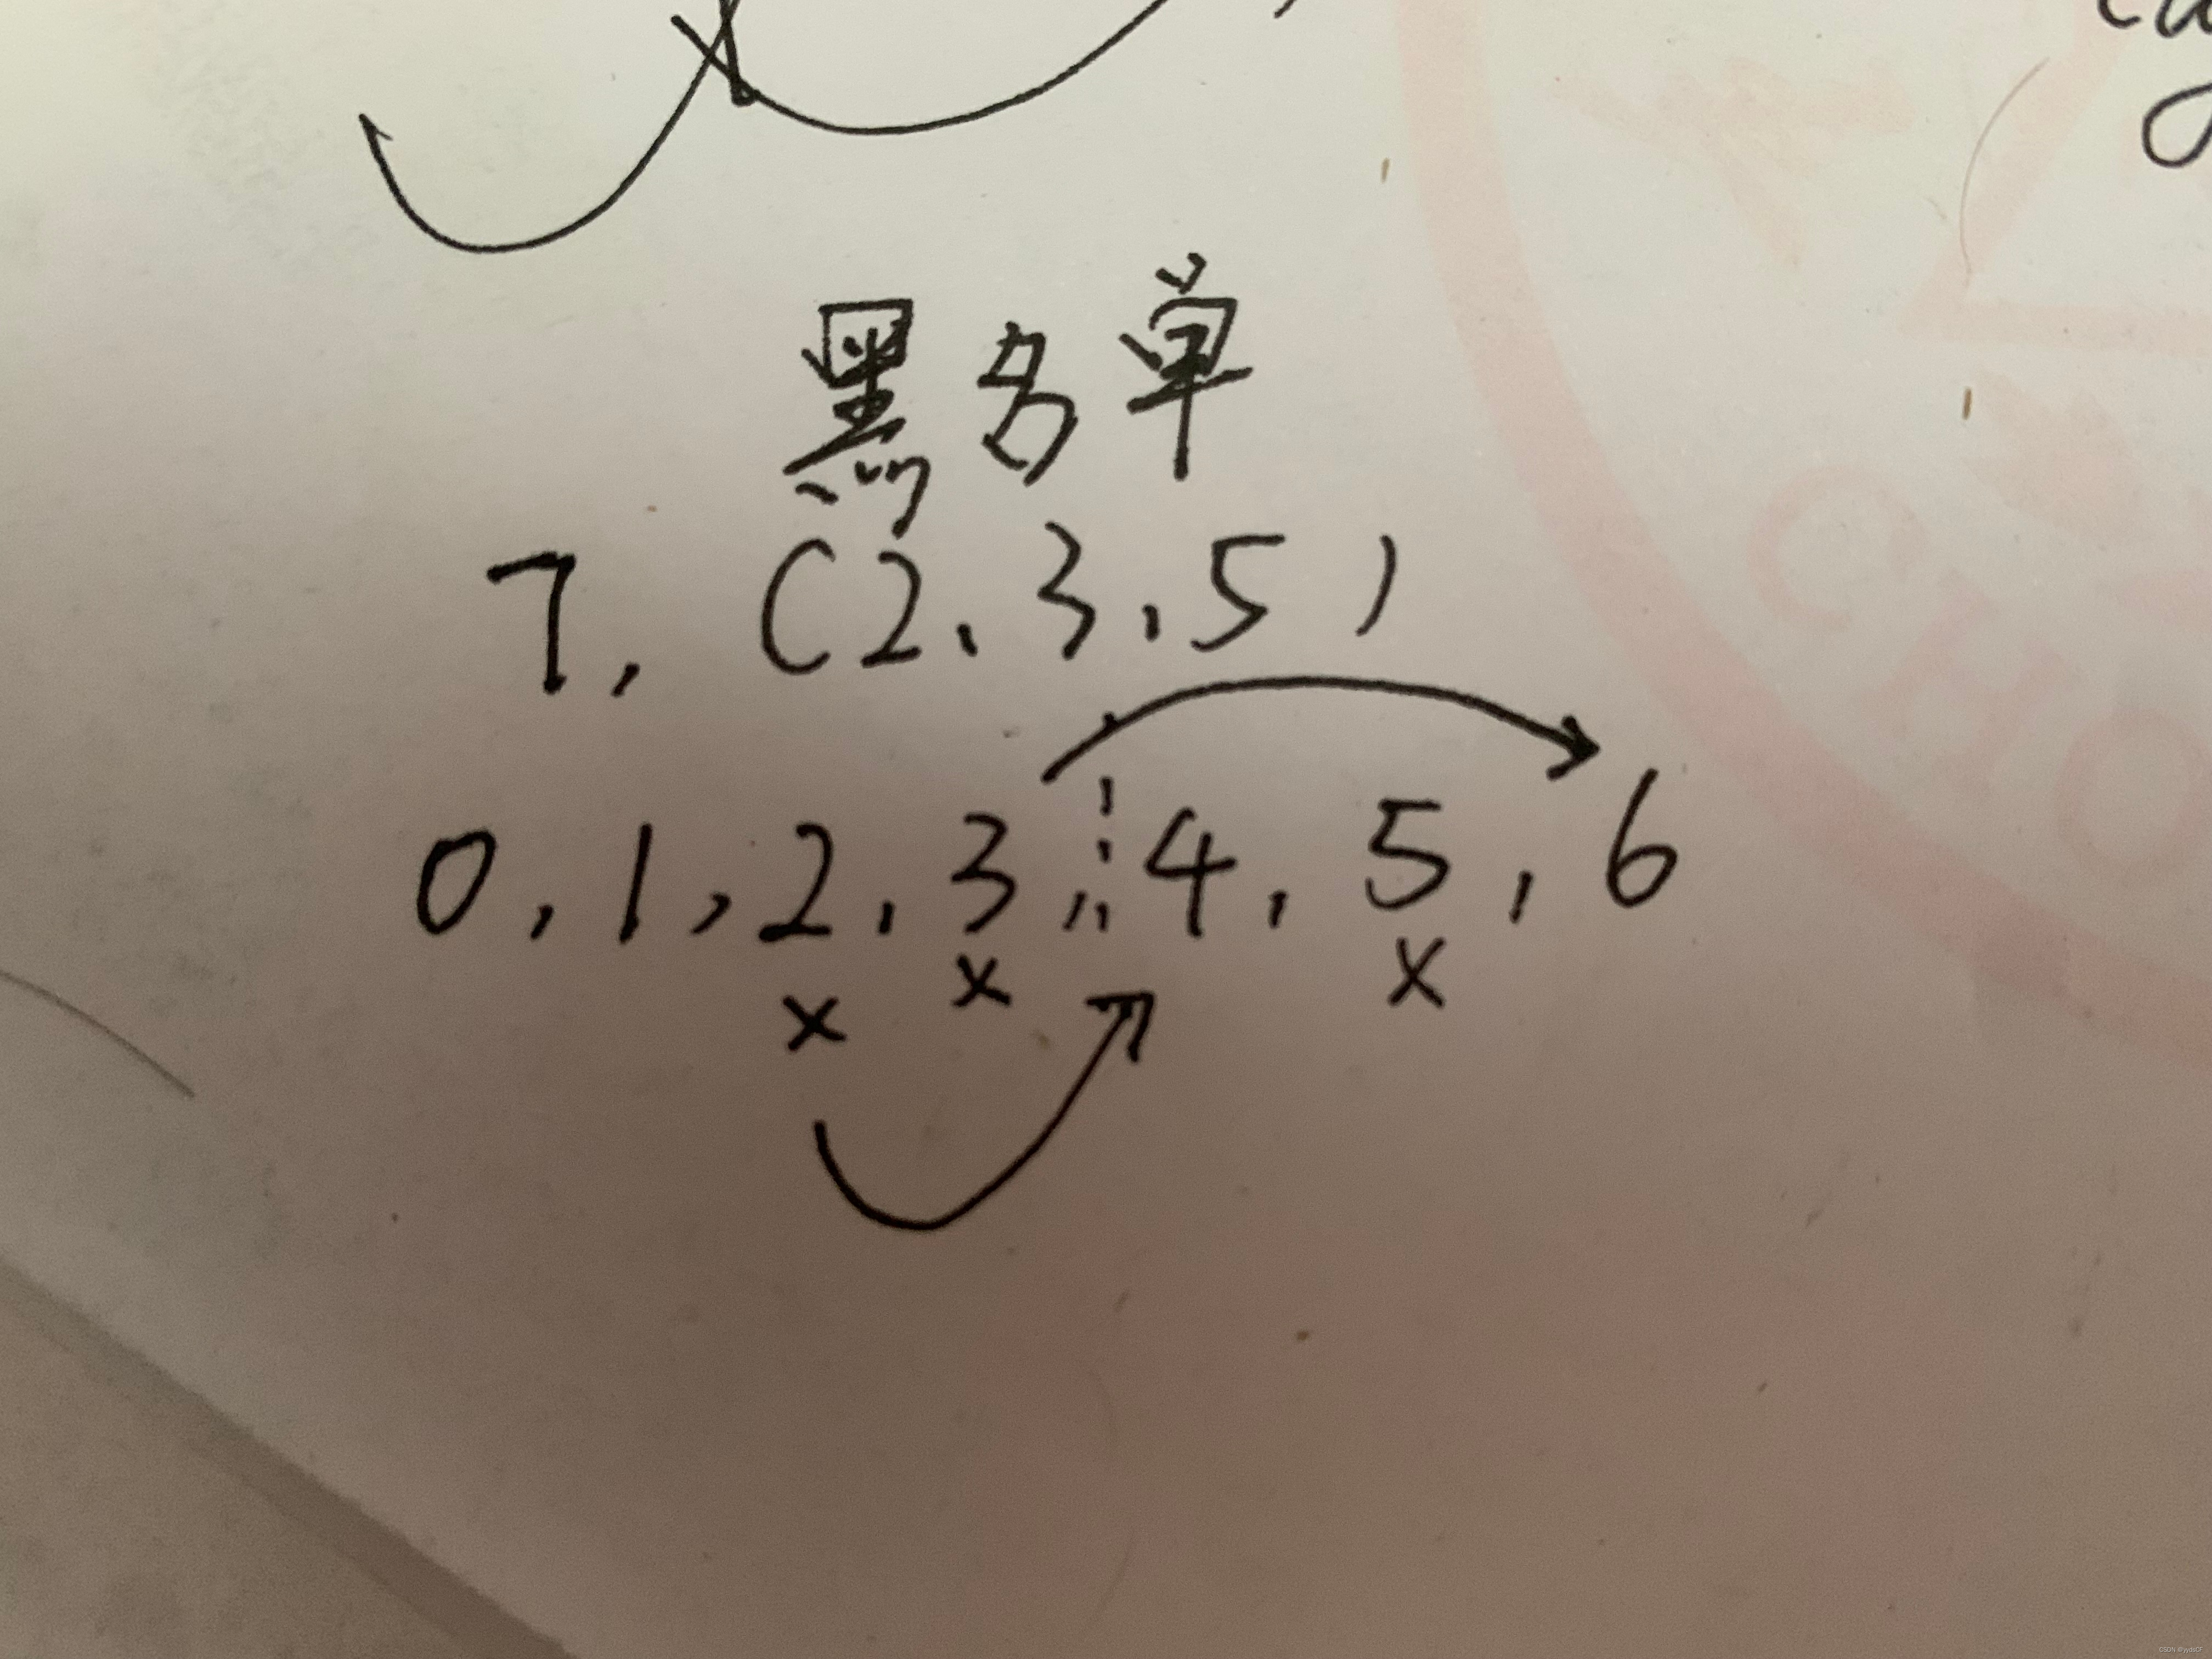 黑名单
7, (2, 3, 5)
0, 1, 2, 3, 4, 5, 6
x x x
CSDN @yydsCF